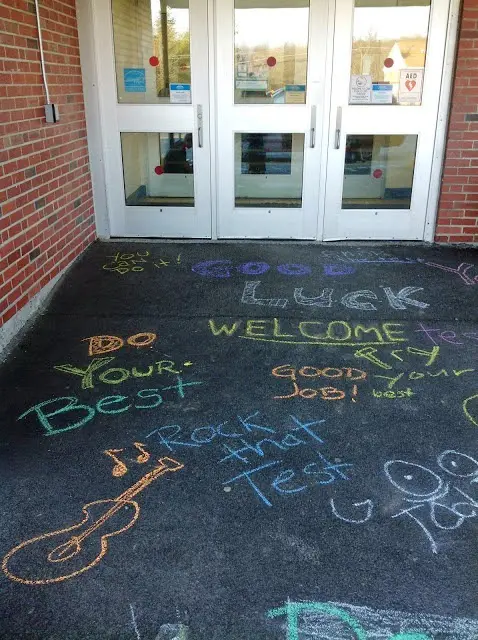 AED
YOU
CAN
DO IT!
GOOD
LUCK
WELCOME
DO
YOUR
Best
GOOD
JOB!
TRY
your
best
Rock
that
Test